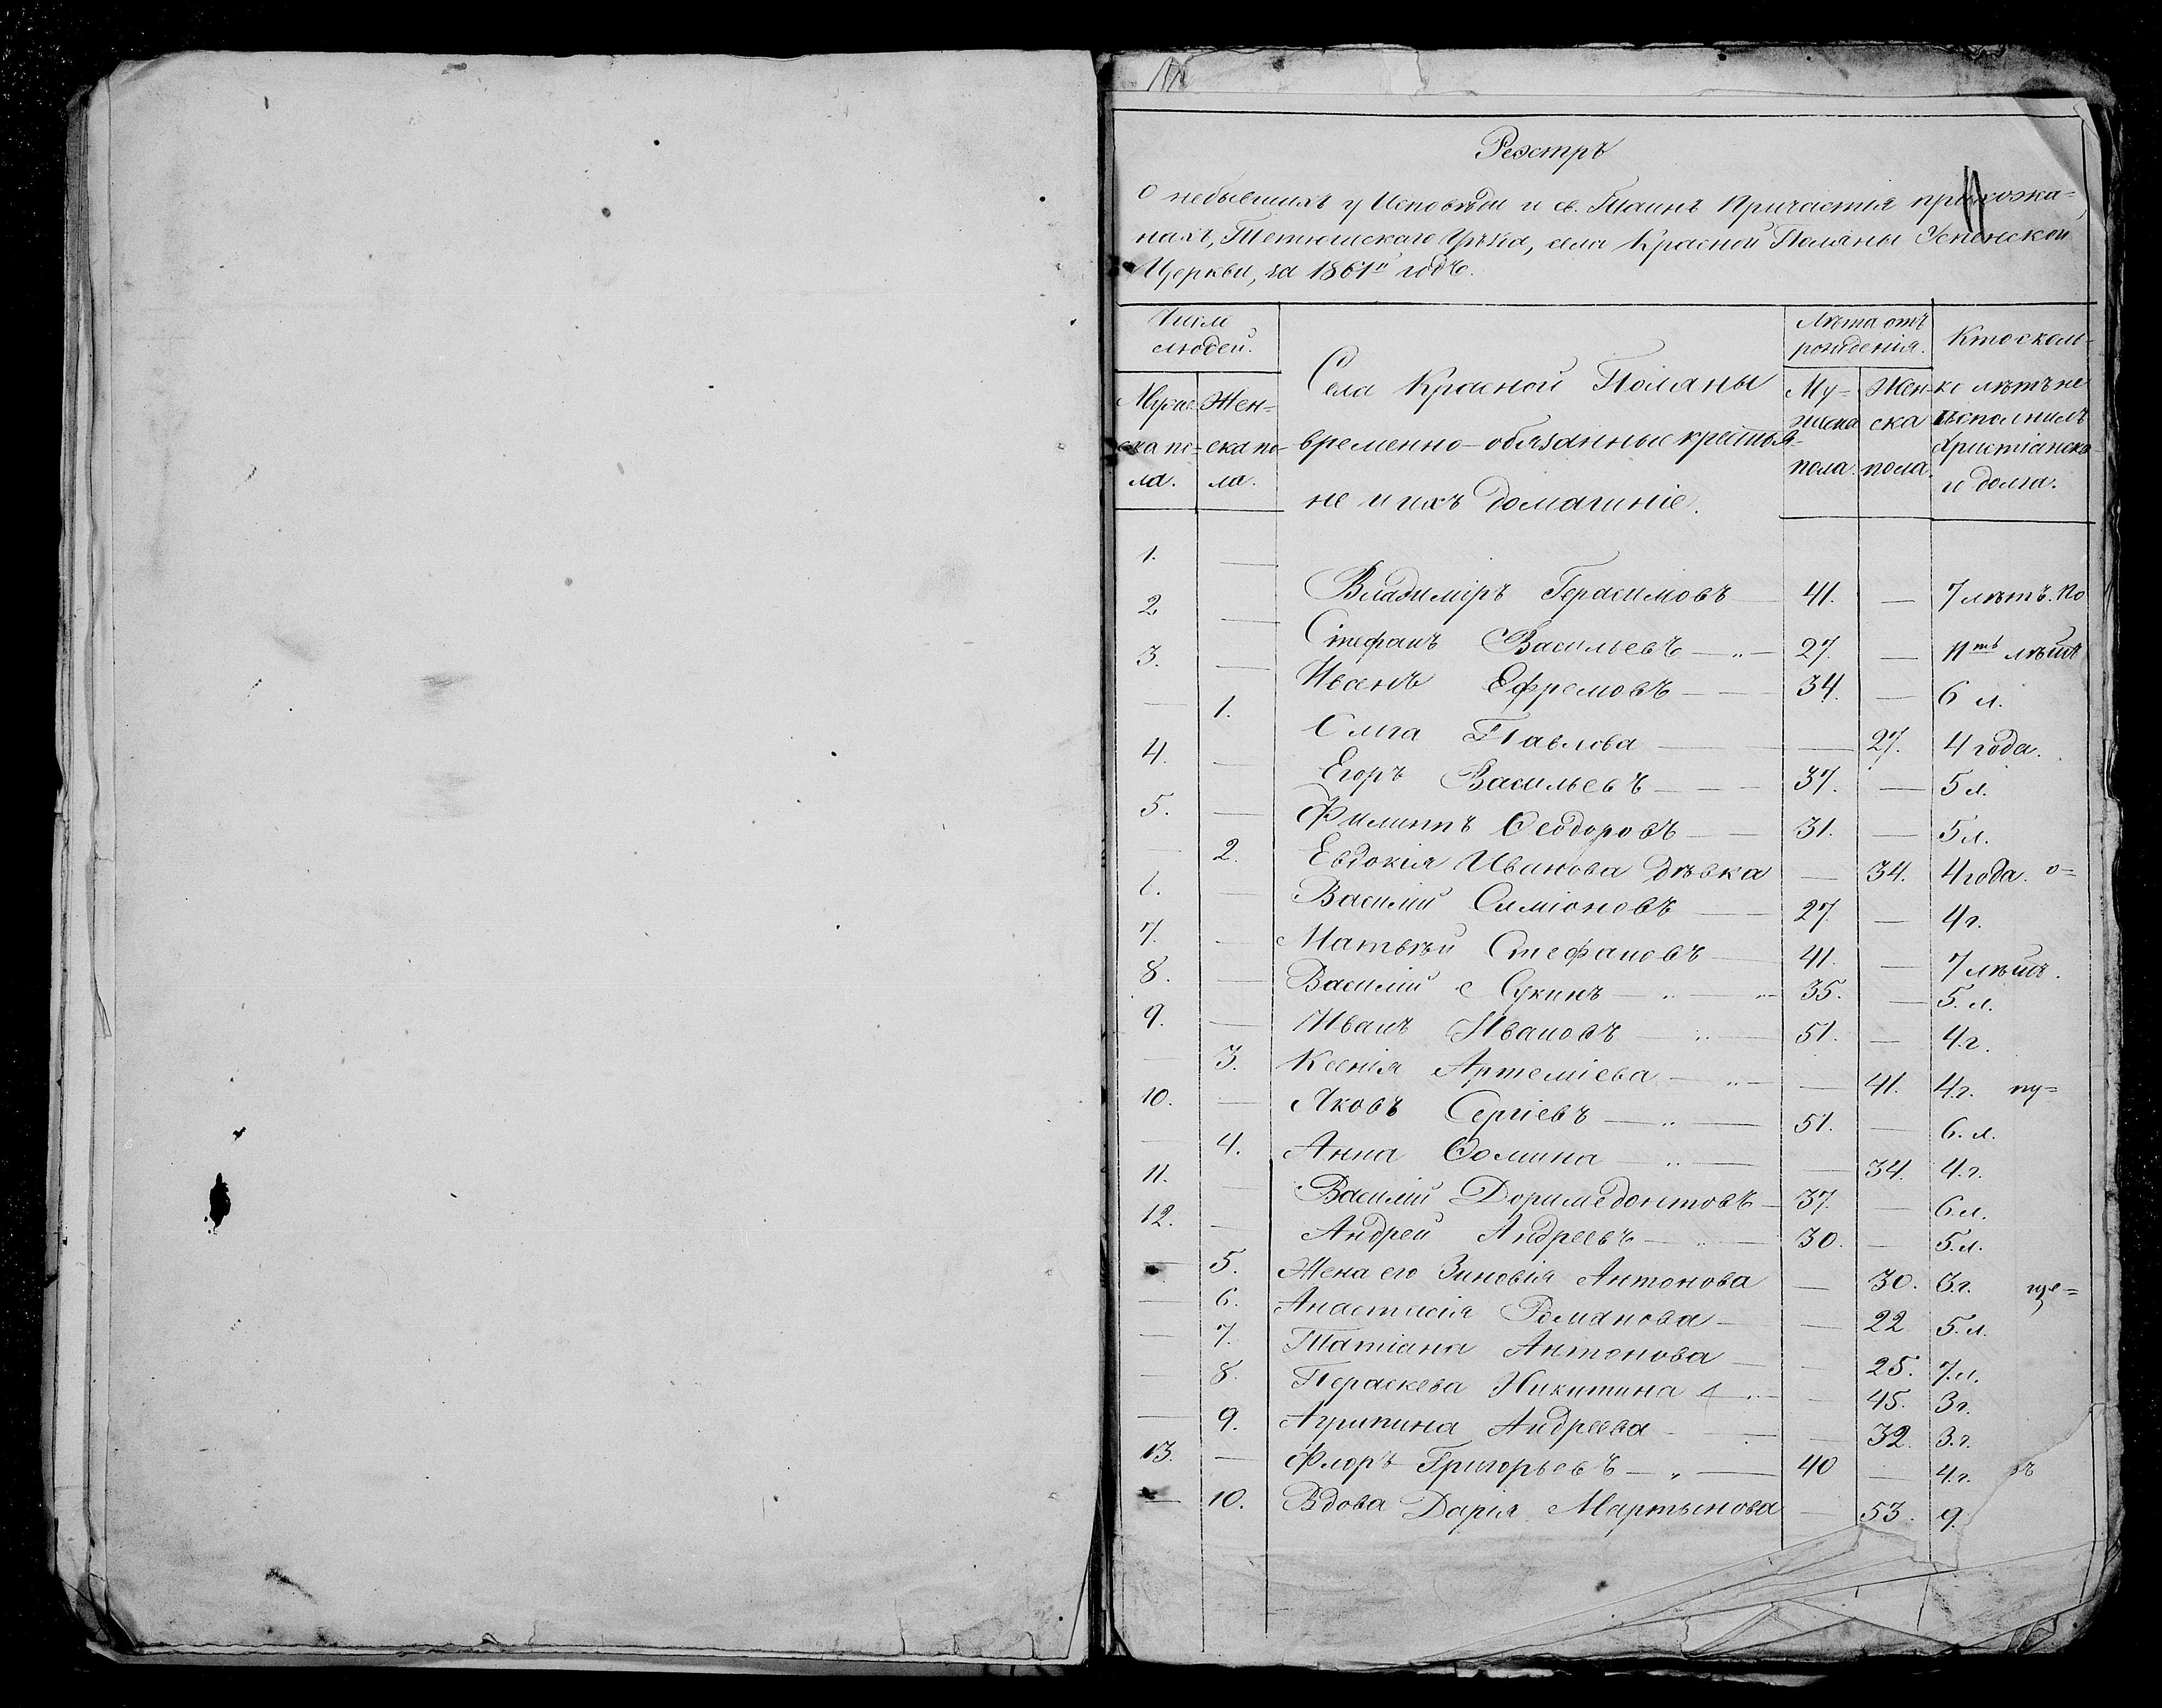 Реэстръ
О небывшихъ у Исповѣди и св. Таинъ Причастія прихожа-
нахъ, Тетюшскаго Уѣзда, села Красной Поляны Успенской
Церкви, за 1861й годъ.
Число людей.
Мужеска пола.
Женска пола.
Села Красной Поляны
временно-обязанные крестья-
не и ихъ домашніе.
Лѣта отъ рожденія.
Мужеска пола.
Женска пола.
Кто сколь-
ко лѣтъ не
исполнилъ
Христіанска-
го долга.
1. — Владиміръ Герасимовъ — 41. — 7 лѣтъ. По
2 — Стефанъ Васильевъ — „ — 27. — лѣтъ
3. — Иванъ Ефремовъ — — 34. — 6 л.
— 1. Ольга Павлова — — 27. 4 года.
4. — Егоръ Васильевъ — — — 37. — 5 л.
5. — Филиппъ Ѳеодоровъ — — 31. — 5 л.
— 2. Евдокія Иванова дѣвка — 34. 4 года. о=
6. — Василій Симіоновъ — — 27 — 4 г.
7. — Матвѣй Стефановъ — 41. — 7 лѣтъ.
8. — Василій Сукинъ — „ — „ — 35. — 5. л.
9. — Иванъ Ивановъ — „ — 51. — 4 г.
— 3. Ксенія Артеміева — „ — — 41. 4. г. пу=
10. — Яковъ Сергіевъ — „ — 51. — 6. л.
— 4. Анна Ѳомина — „ — — 34. 4. г.
11. — Василій Доримедонтовъ — 37. — 6 л.
12. — Андрей Андреевъ — „ — 30. — 5. л.
— 5. Жена его Зиновія Антонова — 30. 3 г. ще=
— 6. Анастасія Романова — — 22. 5. л.
— 7. Татіана Антонова — — 25. 7. л.
— 8. Параскева Никитина „ — — 45. 3 г.
— 9. Агрипина Андреева — — — 32. 3. г.
13. — Флоръ Григорьевъ — „ — 40 — 4. г. ъ
— 10. Вдова Дарія Мартынова — 53. 9.